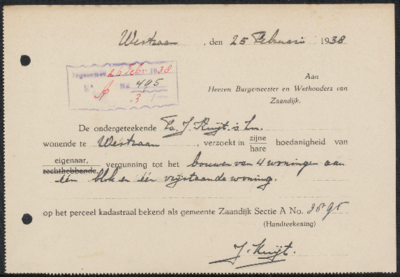 Westzaan, den 25 Februari 1938
Ingekomen 26 Febr 1938
No. 495
Aan
Heeren Burgemeester en Wethouders van
Zaandijk.
De ondergeteekende Fa. J. Kuijt & Zn.
wonende te Westzaan, verzoekt in zijne
hare hoedanigheid van
eigenaar,
rechthebbende, vergunning tot het bouwen van 4 woningen aan
één blok en één vrijstaande woning.
op het perceel kadastraal bekend als gemeente Zaandijk Sectie A No. 1895
(Handteekening)
J. Kuijt.